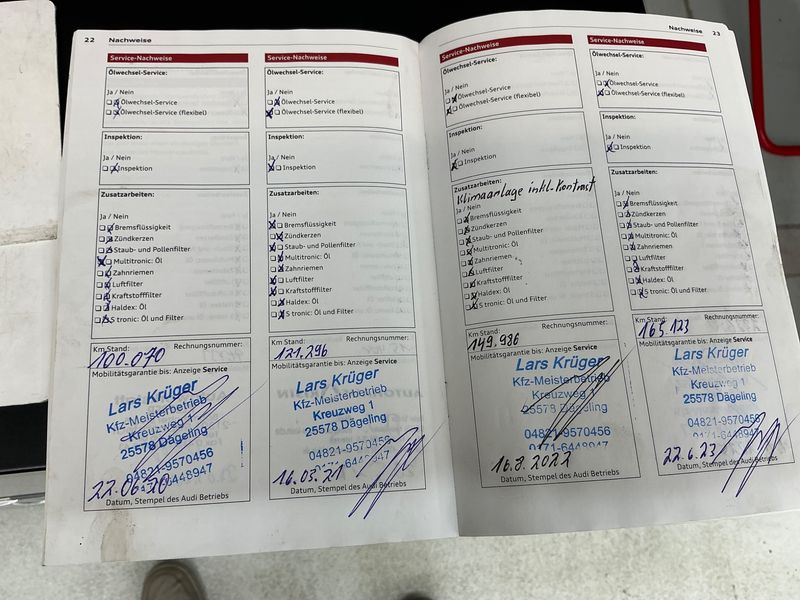 22 Nachweise
Service-Nachweise
Ölwechsel-Service:
Ja / Nein
Ölwechsel-Service
Ölwechsel-Service (flexibel)
Inspektion:
Ja / Nein
Inspektion
Zusatzarbeiten:
Ja / Nein
Bremsflüssigkeit
Zündkerzen
Staub- und Pollenfilter
Multitronic: Öl
Zahnriemen
Luftfilter
Kraftstofffilter
Haldex: Öl
S tronic: Öl und Filter
Km Stand: Rechnungsnummer:
100.070
Mobilitätsgarantie bis: Anzeige Service
Lars Krüger
Kfz-Meisterbetrieb
Kreuzweg 1
25578 Dägeling
04821-9570456
0171-6448947
22.06.20
Datum, Stempel des Audi Betriebs
Service-Nachweise
Ölwechsel-Service:
Ja / Nein
Ölwechsel-Service
Ölwechsel-Service (flexibel)
Inspektion:
Ja / Nein
Inspektion
Zusatzarbeiten:
Ja / Nein
Bremsflüssigkeit
Zündkerzen
Staub- und Pollenfilter
Multitronic: Öl
Zahnriemen
Luftfilter
Kraftstofffilter
Haldex: Öl
S tronic: Öl und Filter
Km Stand: Rechnungsnummer:
121.296
Mobilitätsgarantie bis: Anzeige Service
Lars Krüger
Kfz-Meisterbetrieb
Kreuzweg 1
25578 Dägeling
04821-9570456
0171-6448947
16.03.21
Datum, Stempel des Audi Betriebs
Nachweise 23
Service-Nachweise
Ölwechsel-Service:
Ja / Nein
Ölwechsel-Service
Ölwechsel-Service (flexibel)
Inspektion:
Ja / Nein
Inspektion
Zusatzarbeiten:
Klimaanlage inkl. Kontrast
Ja / Nein
Bremsflüssigkeit
Zündkerzen
Staub- und Pollenfilter
Multitronic: Öl
Zahnriemen
Luftfilter
Kraftstofffilter
Haldex: Öl
S tronic: Öl und Filter
Km Stand: Rechnungsnummer:
149.986
Mobilitätsgarantie bis: Anzeige Service
Lars Krüger
Kfz-Meisterbetrieb
Kreuzweg 1
25578 Dägeling
04821-9570456
0171-6448947
16.8.2022
Datum, Stempel des Audi Betriebs
Service-Nachweise
Ölwechsel-Service:
Ja / Nein
Ölwechsel-Service
Ölwechsel-Service (flexibel)
Inspektion:
Ja / Nein
Inspektion
Zusatzarbeiten:
Ja / Nein
Bremsflüssigkeit
Zündkerzen
Staub- und Pollenfilter
Multitronic: Öl
Zahnriemen
Luftfilter
Kraftstofffilter
Haldex: Öl
S tronic: Öl und Filter
Km Stand: Rechnungsnummer:
165.123
Mobilitätsgarantie bis: Anzeige Service
Lars Krüger
Kfz-Meisterbetrieb
Kreuzweg 1
25578 Dägeling
04821-9570456
0171-6448947
22.6.23
Datum, Stempel des Audi Betriebs